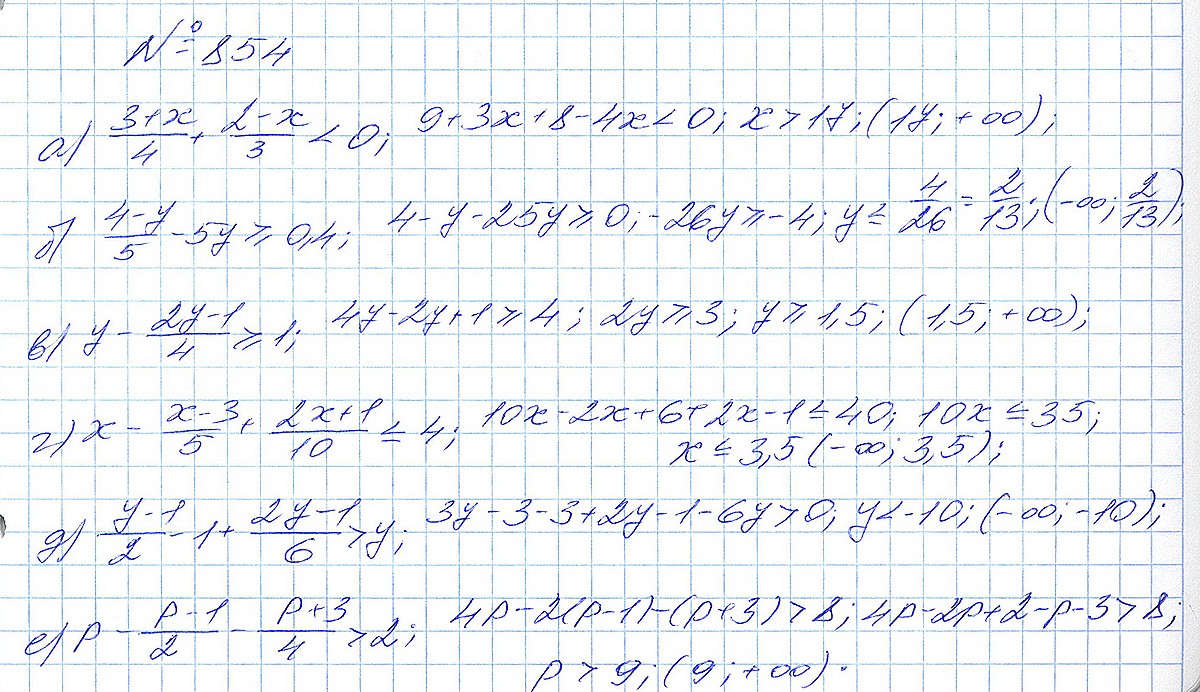 № 854
а) (3+x)/4 + (2-x)/3 < 0; 9+3x+8-4x < 0; x > 17; (17; +∞);
б) (4-y)/5 - 5y ≥ 0,4; 4-y-25y ≥ 0; -26y ≥ -4; y ≤ 4/26 = 2/13; (-∞; 2/13);
в) y - (2y-1)/4 ≥ 1; 4y-2y+1 ≥ 4; 2y ≥ 3; y ≥ 1,5; (1,5; +∞);
г) x - (x-3)/5 + (2x+1)/10 ≤ 4; 10x-2x+6+2x-1 ≤ 40; 10x ≤ 35;
x ≤ 3,5 (-∞; 3,5);
д) (y-1)/2 - 1 + (2y-1)/6 > y; 3y-3-3+2y-1-6y > 0; y < -10; (-∞; -10);
е) p - (p-1)/2 - (p+3)/4 > 2; 4p-2(p-1)-(p+3) > 8; 4p-2p+2-p-3 > 8;
p > 9; (9; +∞).